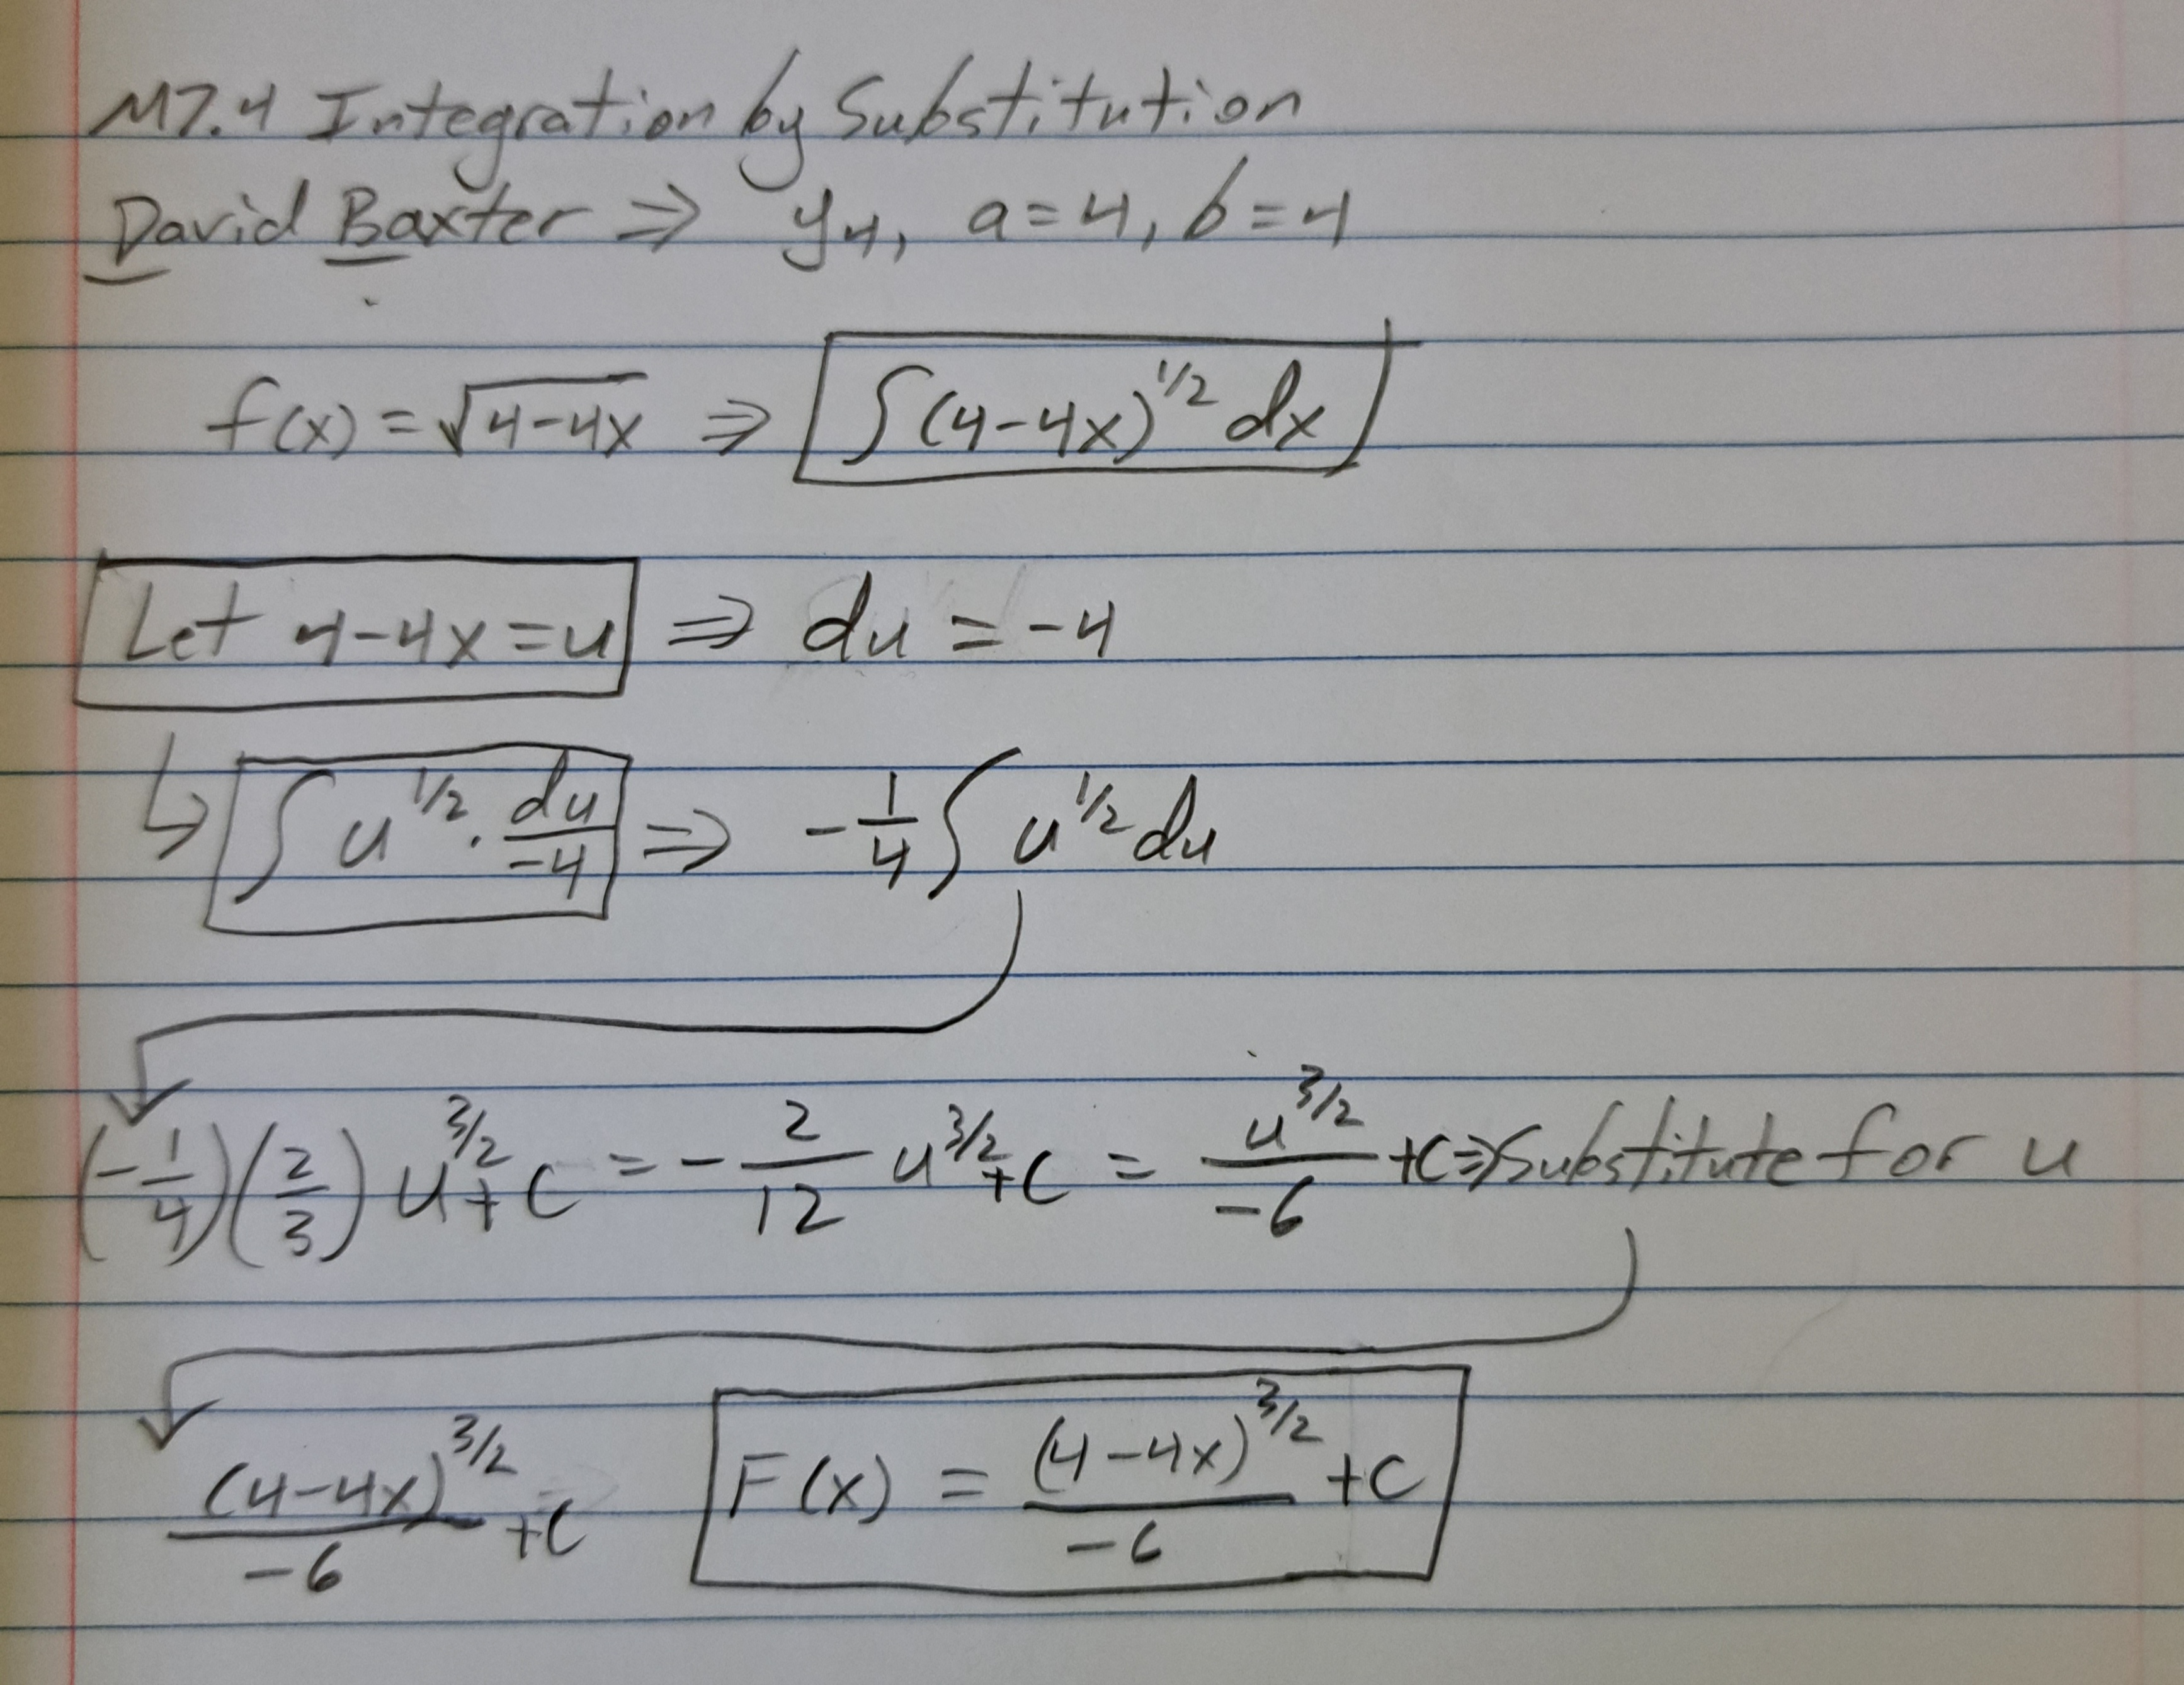 M7.4 Integration by Substitution
David Baxter ⇒ y₄, a=4, b=4
f(x) = √(4-4x) ⇒ ∫(4-4x)^(1/2) dx
Let 4-4x=u ⇒ du = -4
↳ ∫ u^(1/2) · du/-4 ⇒ -1/4 ∫ u^(1/2) du
(-1/4)(2/3) u^(3/2) + C = -2/12 u^(3/2) + C = u^(3/2)/-6 + C ⇒ Substitute for u
(4-4x)^(3/2)/-6 + C F(x) = (4-4x)^(3/2)/-6 + C